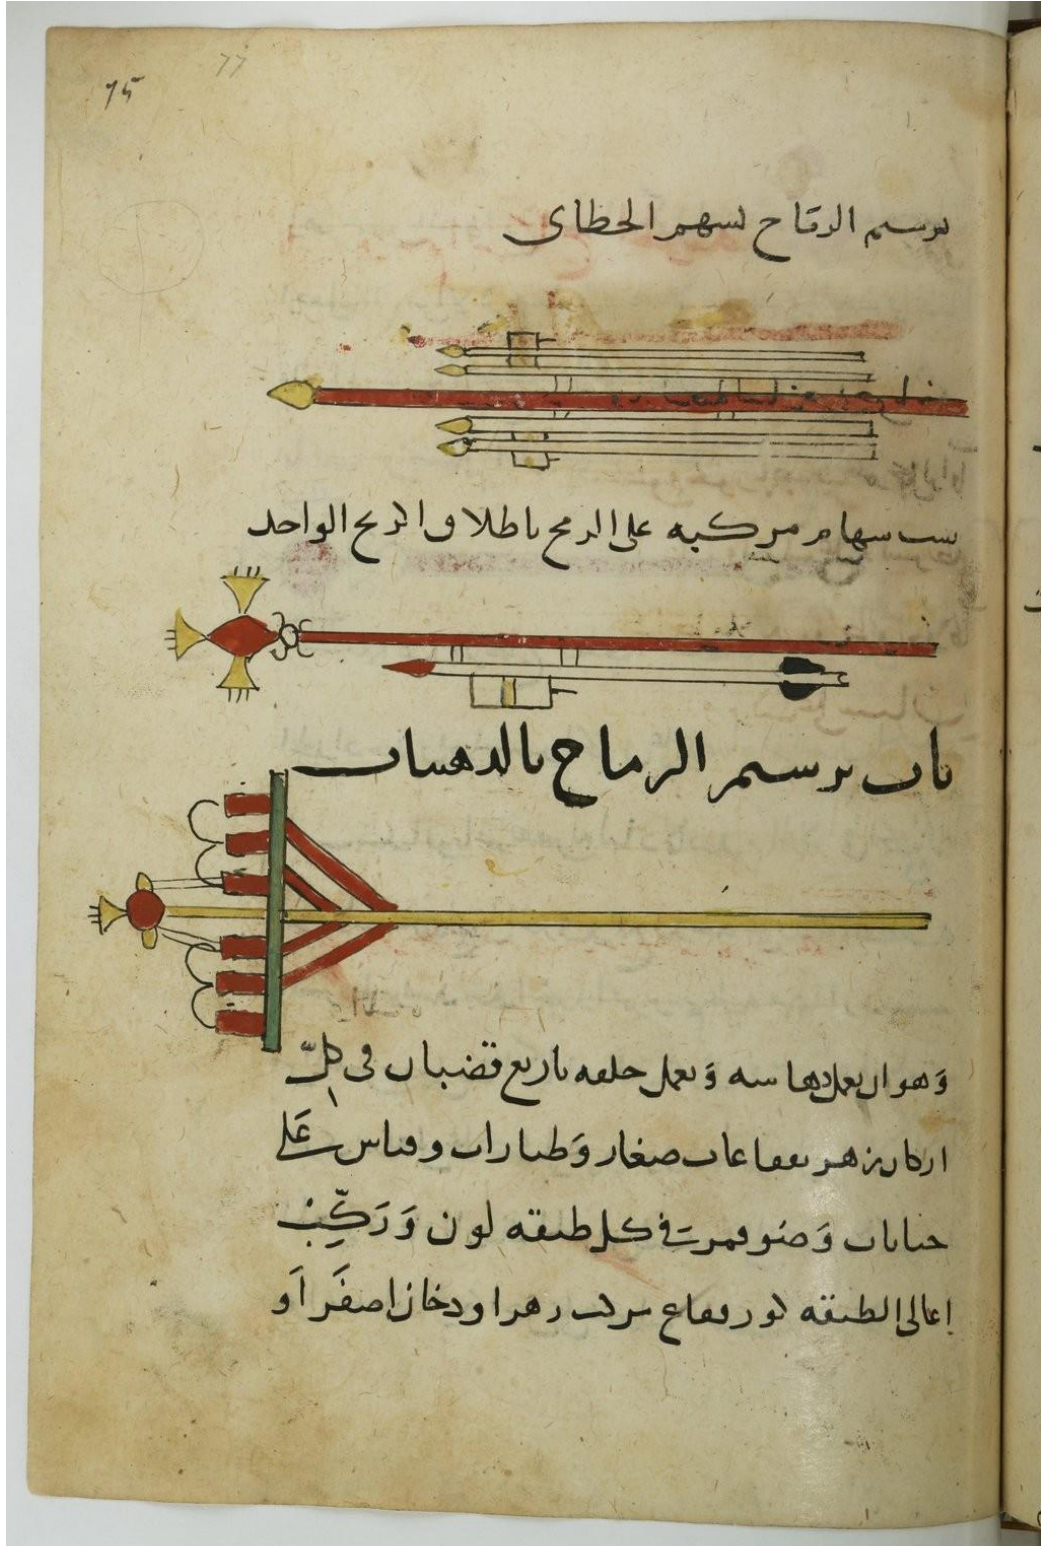 77
75
برسم الرماح بسهم الخطاى
ست سهام مركبه على الرمح باطلاق الريح الواحد
باب برسم الرماح بالدهسات
وَهو ان يعمل دهاسه وَيعمل حلقه باربع قضبان فى كلّ
اركان زهر فقاعات صغار وَطيارات وقاس عَلى
جنابات وَضو قمر فى كل طبقه لون وَرَكِّب
اعالى الطبقه لون فقاع مركب زهر او دخان اصفَر اَو